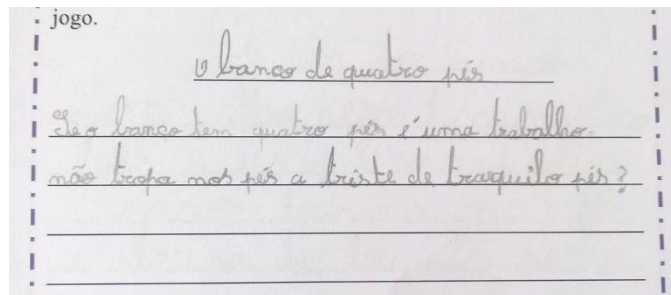 jogo.
O banco de quatro pés
Se o banco tem quatro pés é uma trabalho.
não tropa nos pés a triste de traquilo pés?